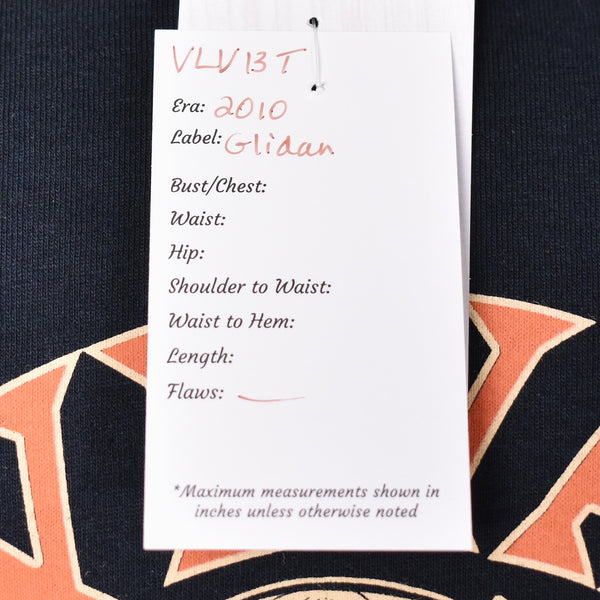 VLV13T
Era: 2010
Label: Glidan
Bust/Chest:
Waist:
Hip:
Shoulder to Waist:
Waist to Hem:
Length:
Flaws: —
*Maximum measurements shown in
inches unless otherwise noted